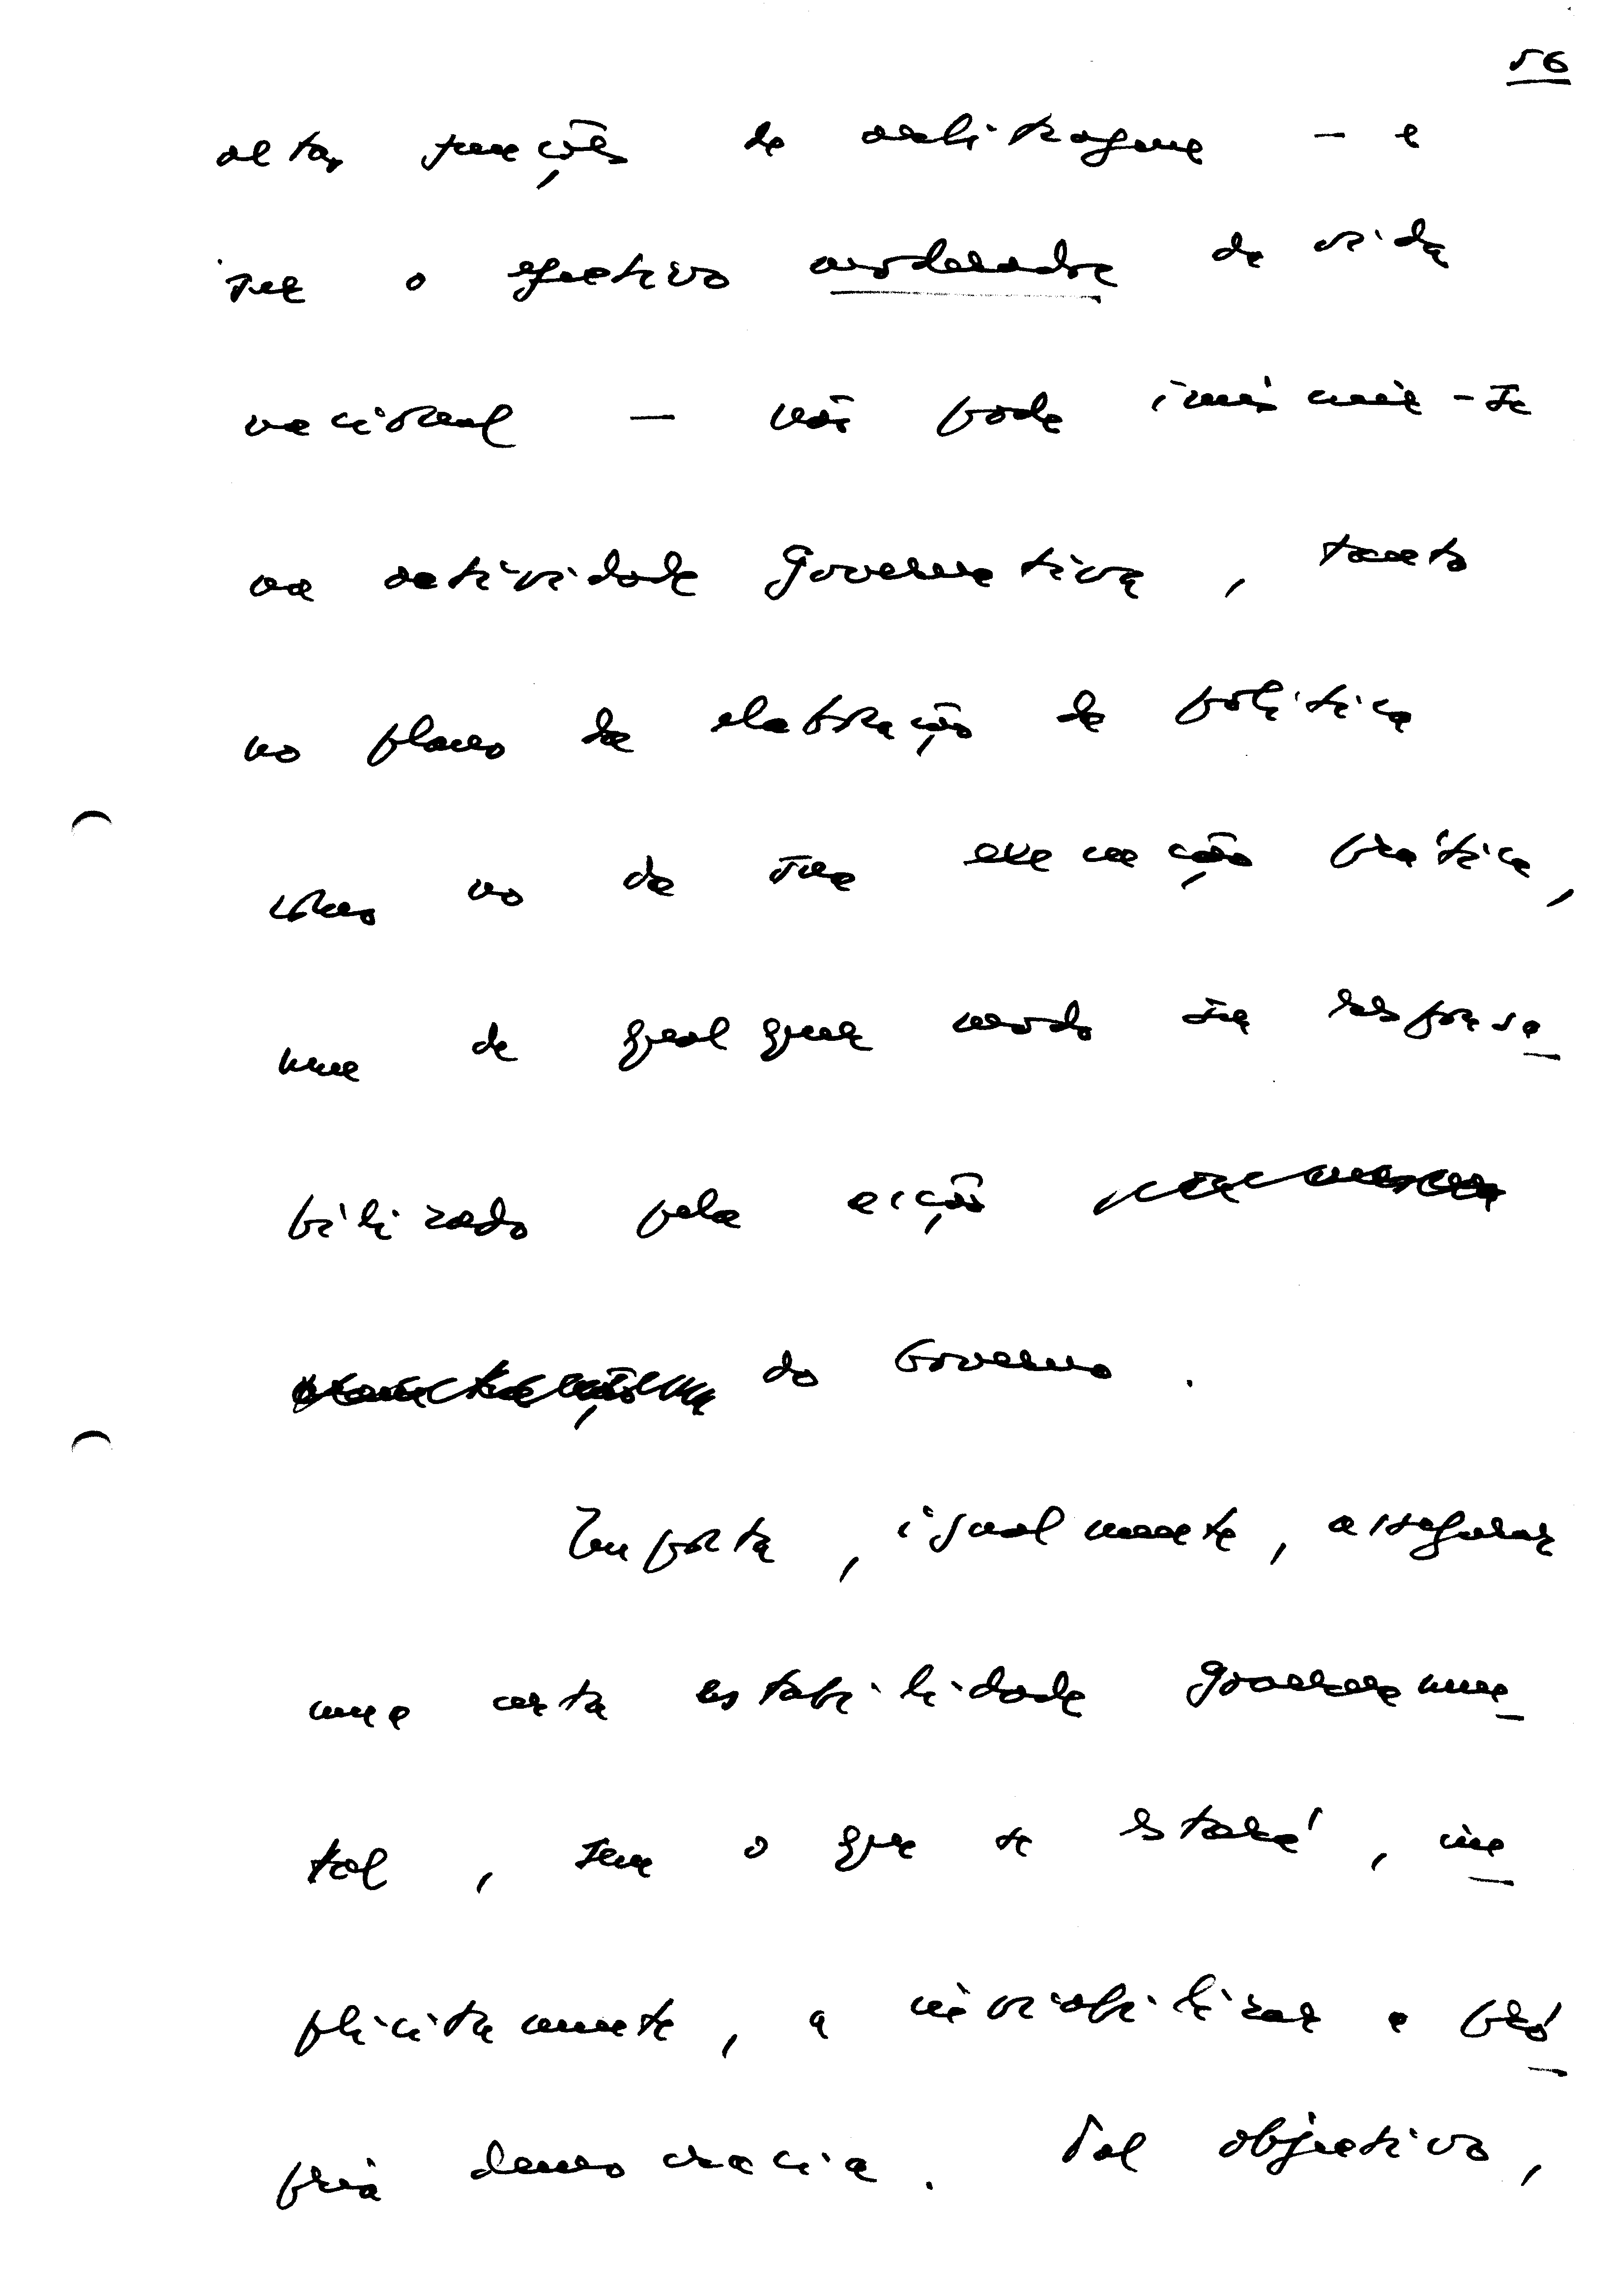 56
altas funções de arbitragem — e
ser o efectivo moderador da vida
nacional — não pode imiscuir-se
na actividade governativa, tanto
no plano da elaboração da política
como no da sua execução prática,
nem de qualquer modo ser responsa
bilizado pela acção
do Governo.
Importa, igualmente, assegurar
uma certa estabilidade governamen
tal, sem o que se estará, im
plicitamente, a inviabilizar a pró
pria democracia. Tal objectivo,